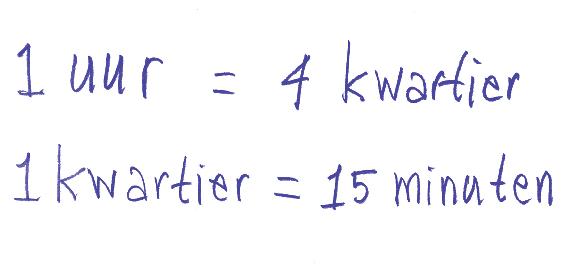 1 uur = 4 kwartier
1 kwartier = 15 minuten